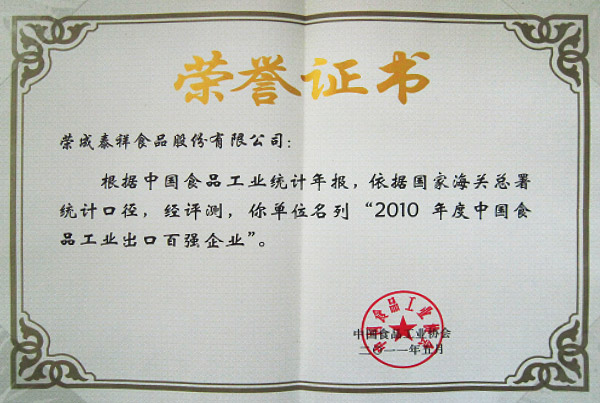 荣誉证书
荣成泰祥食品股份有限公司：
根据中国食品工业统计年报，依据国家海关总署
统计口径，经评测，你单位名列“2010 年度中国食
品工业出口百强企业”。
中国食品工业协会
中国食品工业协会
二〇一一年五月